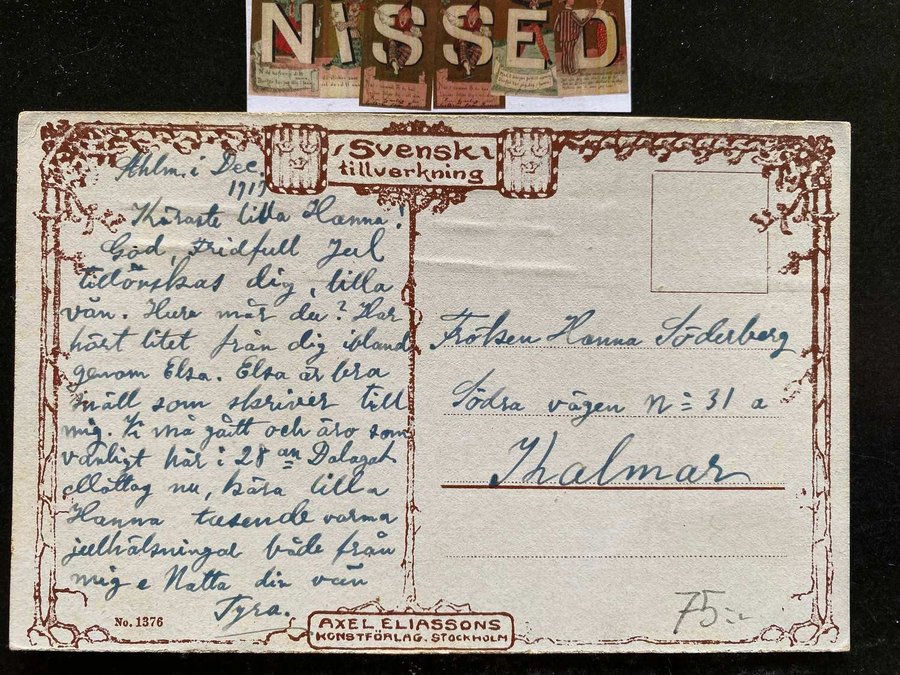 NISSED
Svensk
tillverkning
Sthlm. i Dec.
1917
Käraste lilla Hanna!
God, Fridfull Jul
tillönskas dig, lilla
vän. Huru mår du? Har
hört litet från dig ibland
genom Elsa. Elsa är bra
snäll som skriver till
mig. Vi må gott och äro som
vanligt här i 28 an Dalagat.
Mottag nu, kära lilla
Hanna tusende varma
julhälsningar både från
mig o Natta din vän
Tyra.
Fröken Hanna Söderberg
Södra vägen No 31 a
Kalmar
75:-
No. 1376
AXEL ELIASSONS
KONSTFÖRLAG. STOCKHOLM